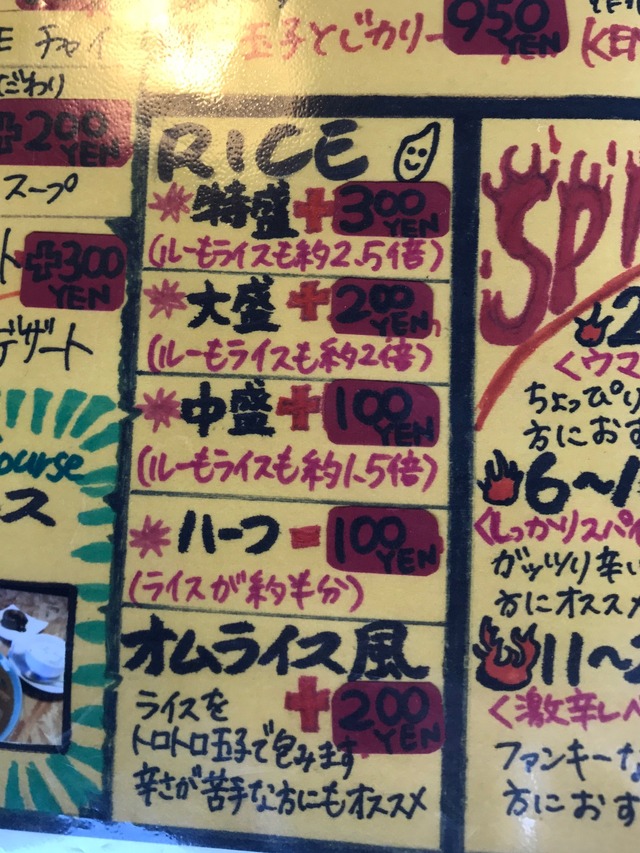 チャイ
玉子とじカリー
950
YEN
だわり
+200
YEN
スープ
+300
YEN
デザート
ourse
RICE
特盛+300
YEN
(ルーもライスも約2.5倍)
大盛+200
YEN
(ルーもライスも約2倍)
中盛+100
YEN
(ルーもライスも約1.5倍)
ハーフ-100
YEN
(ライスが約半分)
オムライス風
+200
YEN
ライスを
トロトロ玉子で包みます
辛さが苦手な方にもオススメ
SP
<ウマ
ちょっぴり
方におす
6~1
<しっかりスパイ
ガッツリ辛い
方にオススメ
11~
<激辛レベ
ファンキーな
方におす